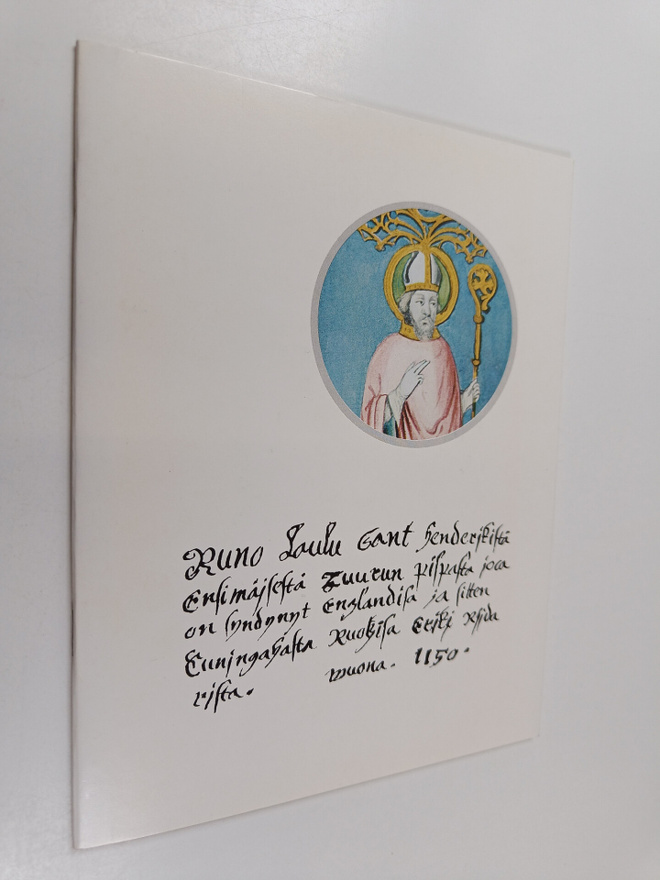 Runo Laulu Sant Henderjkistä
Ensimäjsestä Tuurun pispasta joca
on syndynyt Englandisa ja sitten
Cuningahasta Ruotzisa Erikj
rista. wuona. 1150.